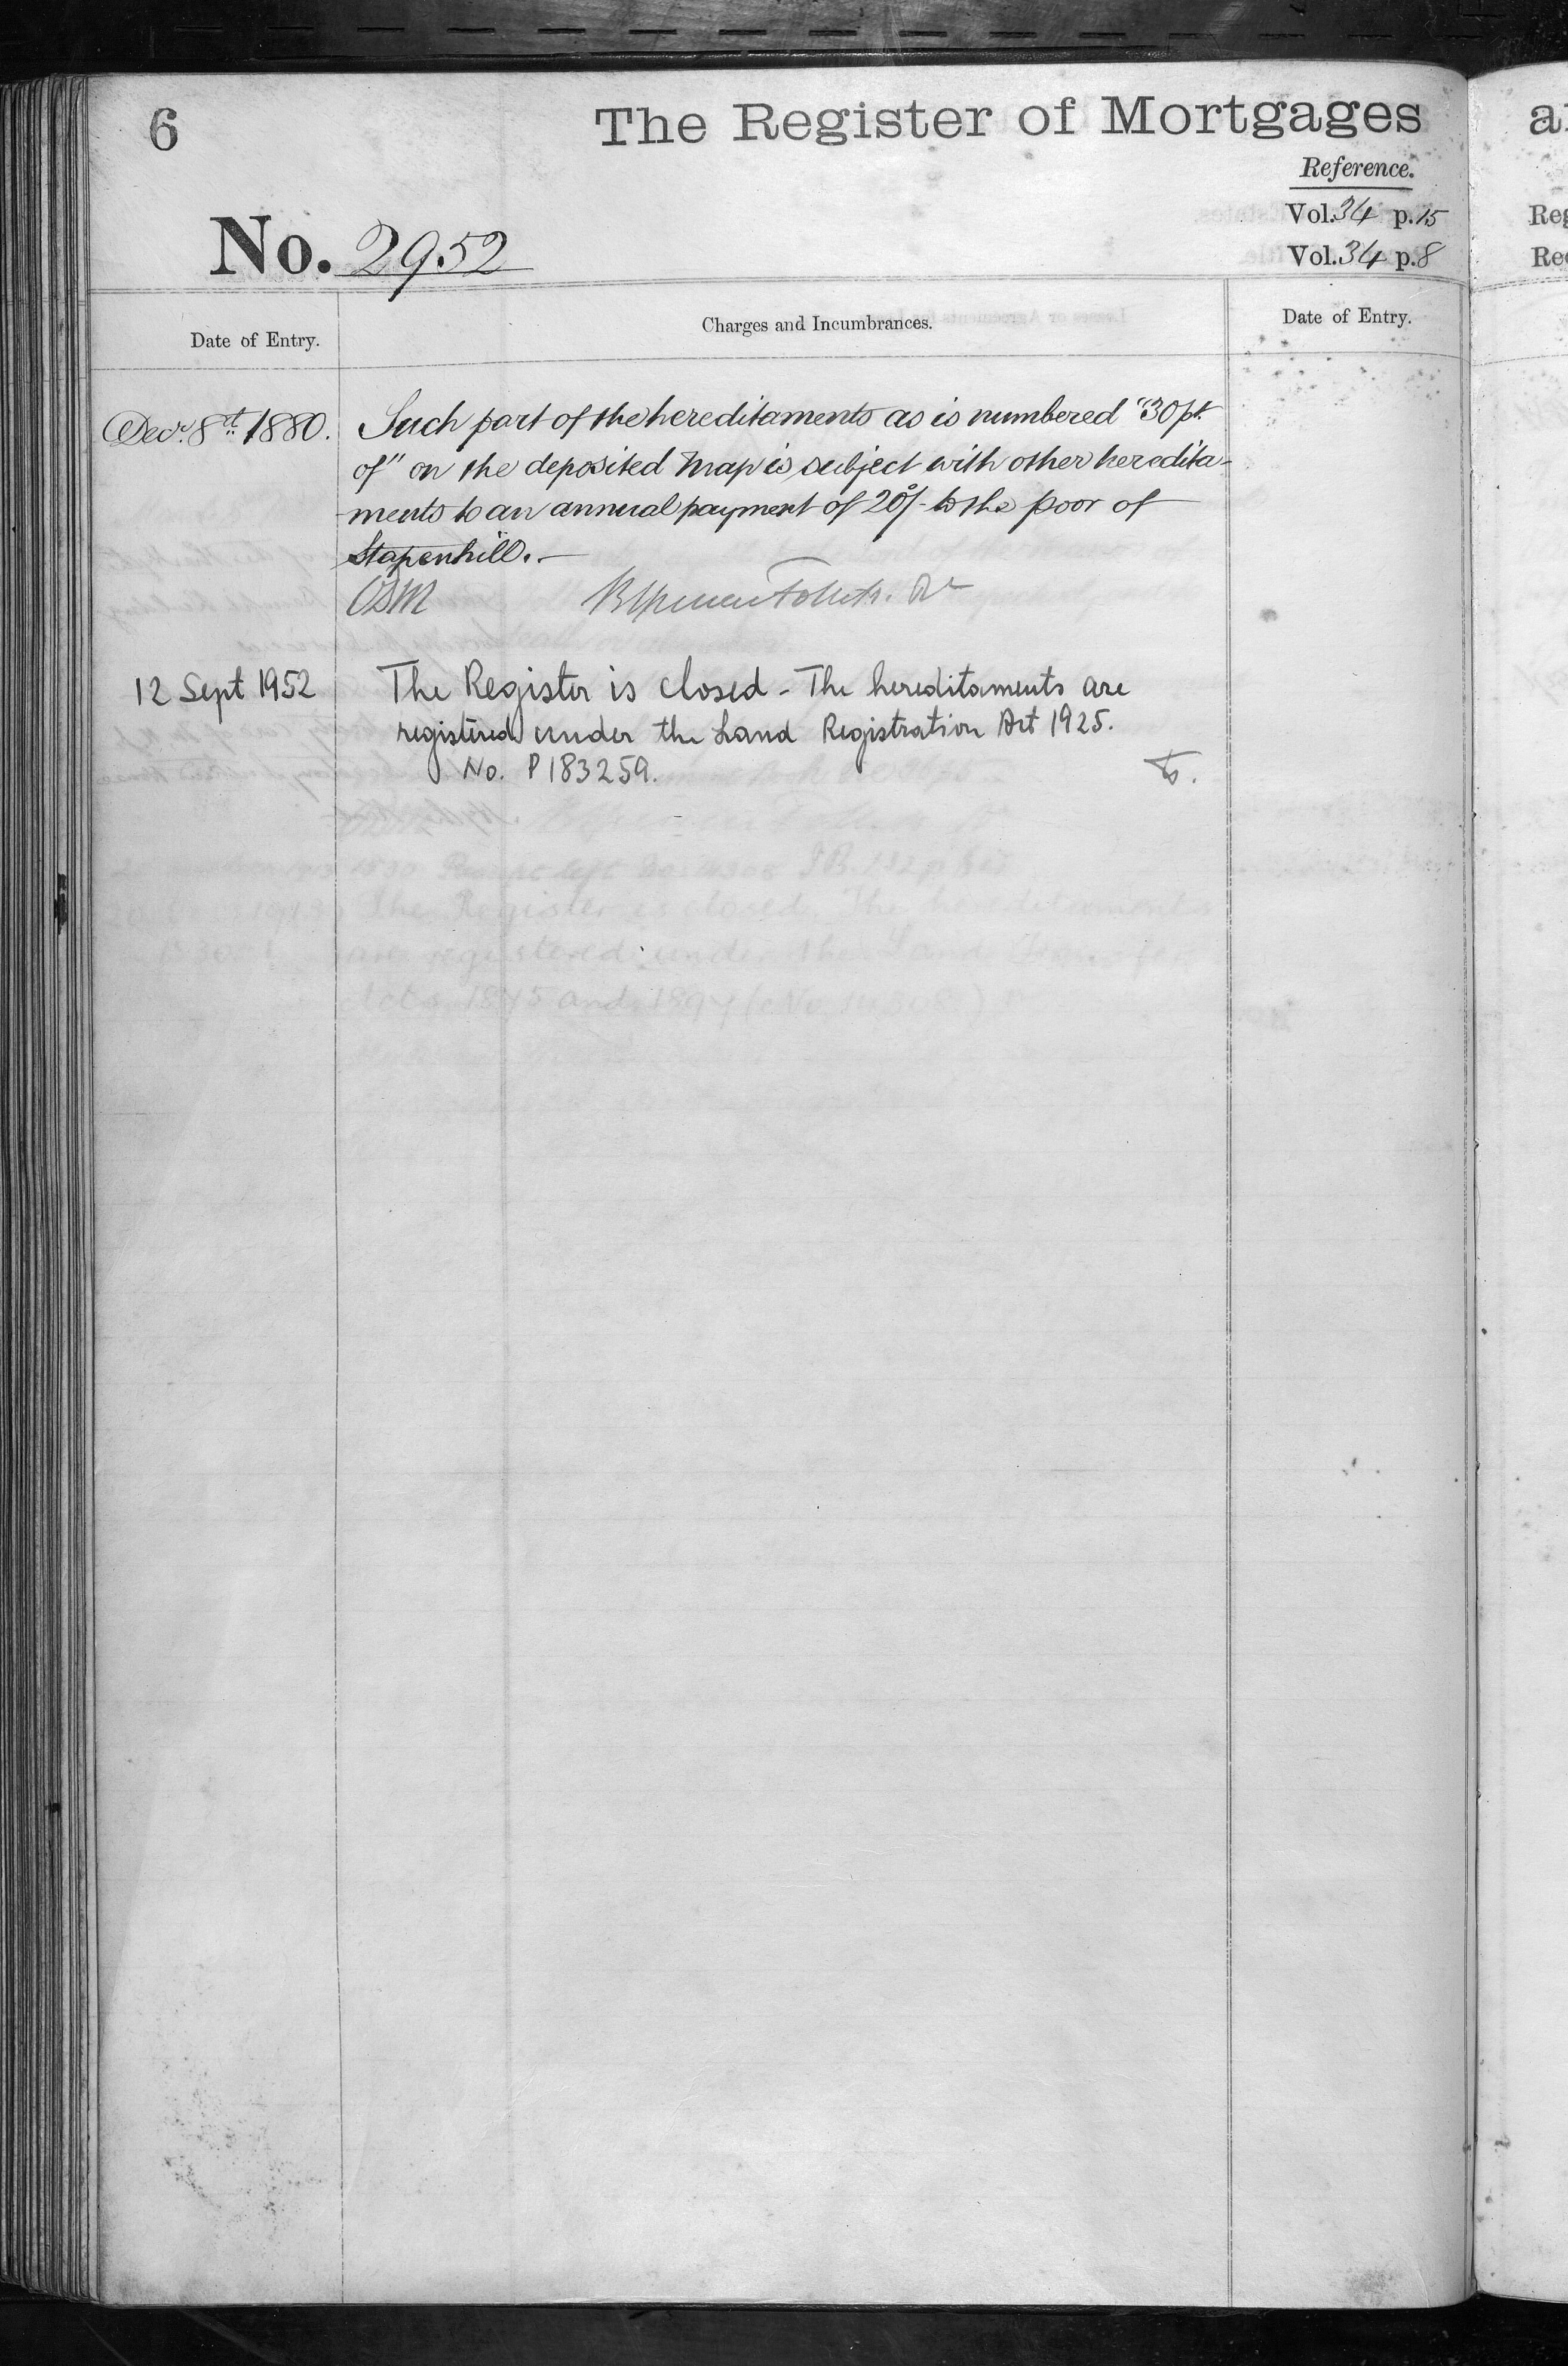 6
The Register of Mortgages
Reference.
Vol. 34 p. 15
Vol. 34 p. 8
No. 2952
Date of Entry.
Charges and Incumbrances.
Date of Entry.
Decr. 8th 1880.
Such part of the hereditaments as is numbered "30 pt.
of" on the deposited Map is subject with other heredita-
ments to an annual payment of 20s/- to the poor of
Stapenhill.
12 Sept 1952
The Register is closed - The hereditaments are
registered under the Land Registration Act 1925.
No. P183259.
a
Reg
Rec